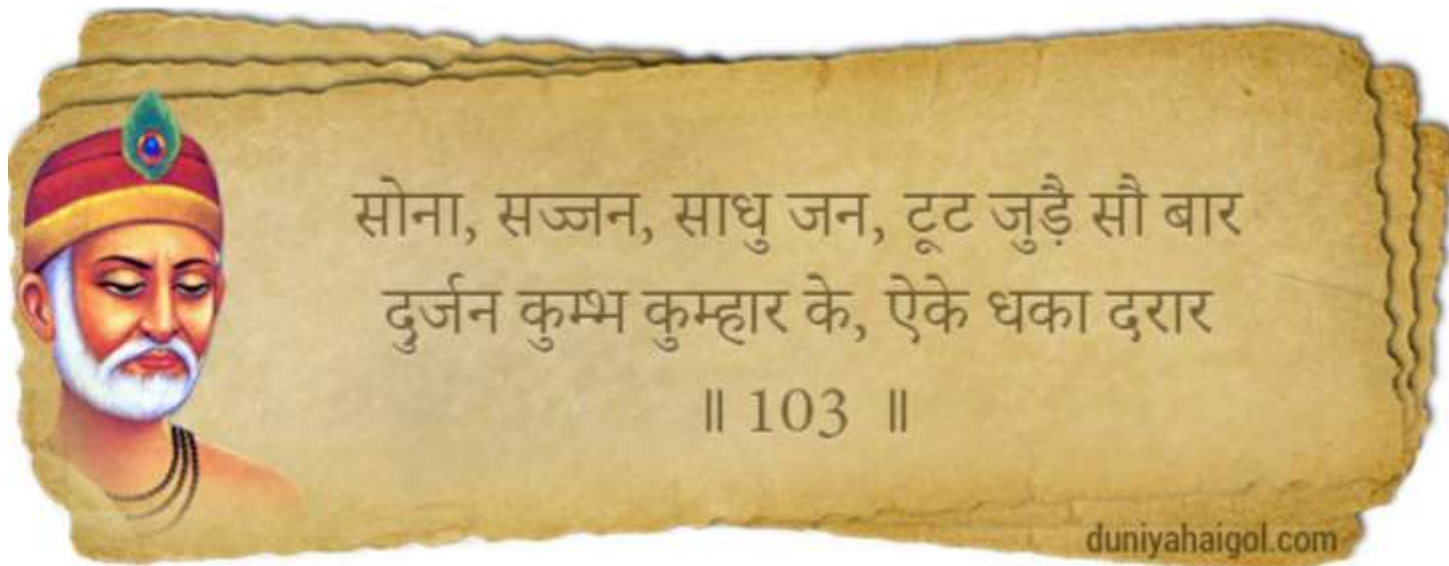 सोना, सज्जन, साधु जन, टूट जुड़ै सौ बार
दुर्जन कुम्भ कुम्हार के, ऐके धका दरार
॥ 103 ॥
duniyahaigol.com